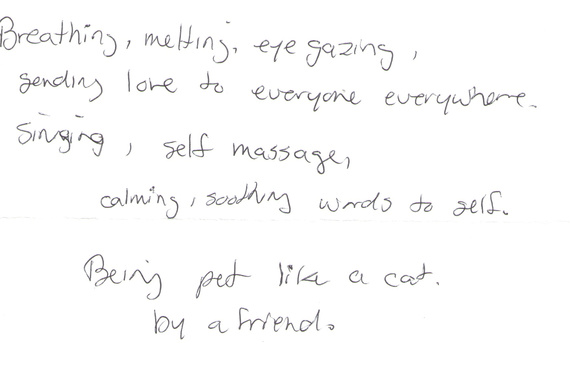 Breathing, melting, eye gazing,
sending love to everyone everywhere.
Singing, self massage,
calming, soothing words to self.
Being pet like a cat.
by a friend.